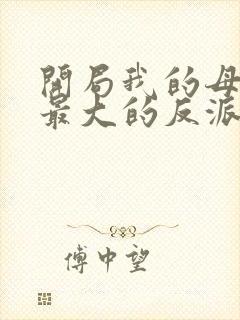 開局我的母
最大的反派
傅中望